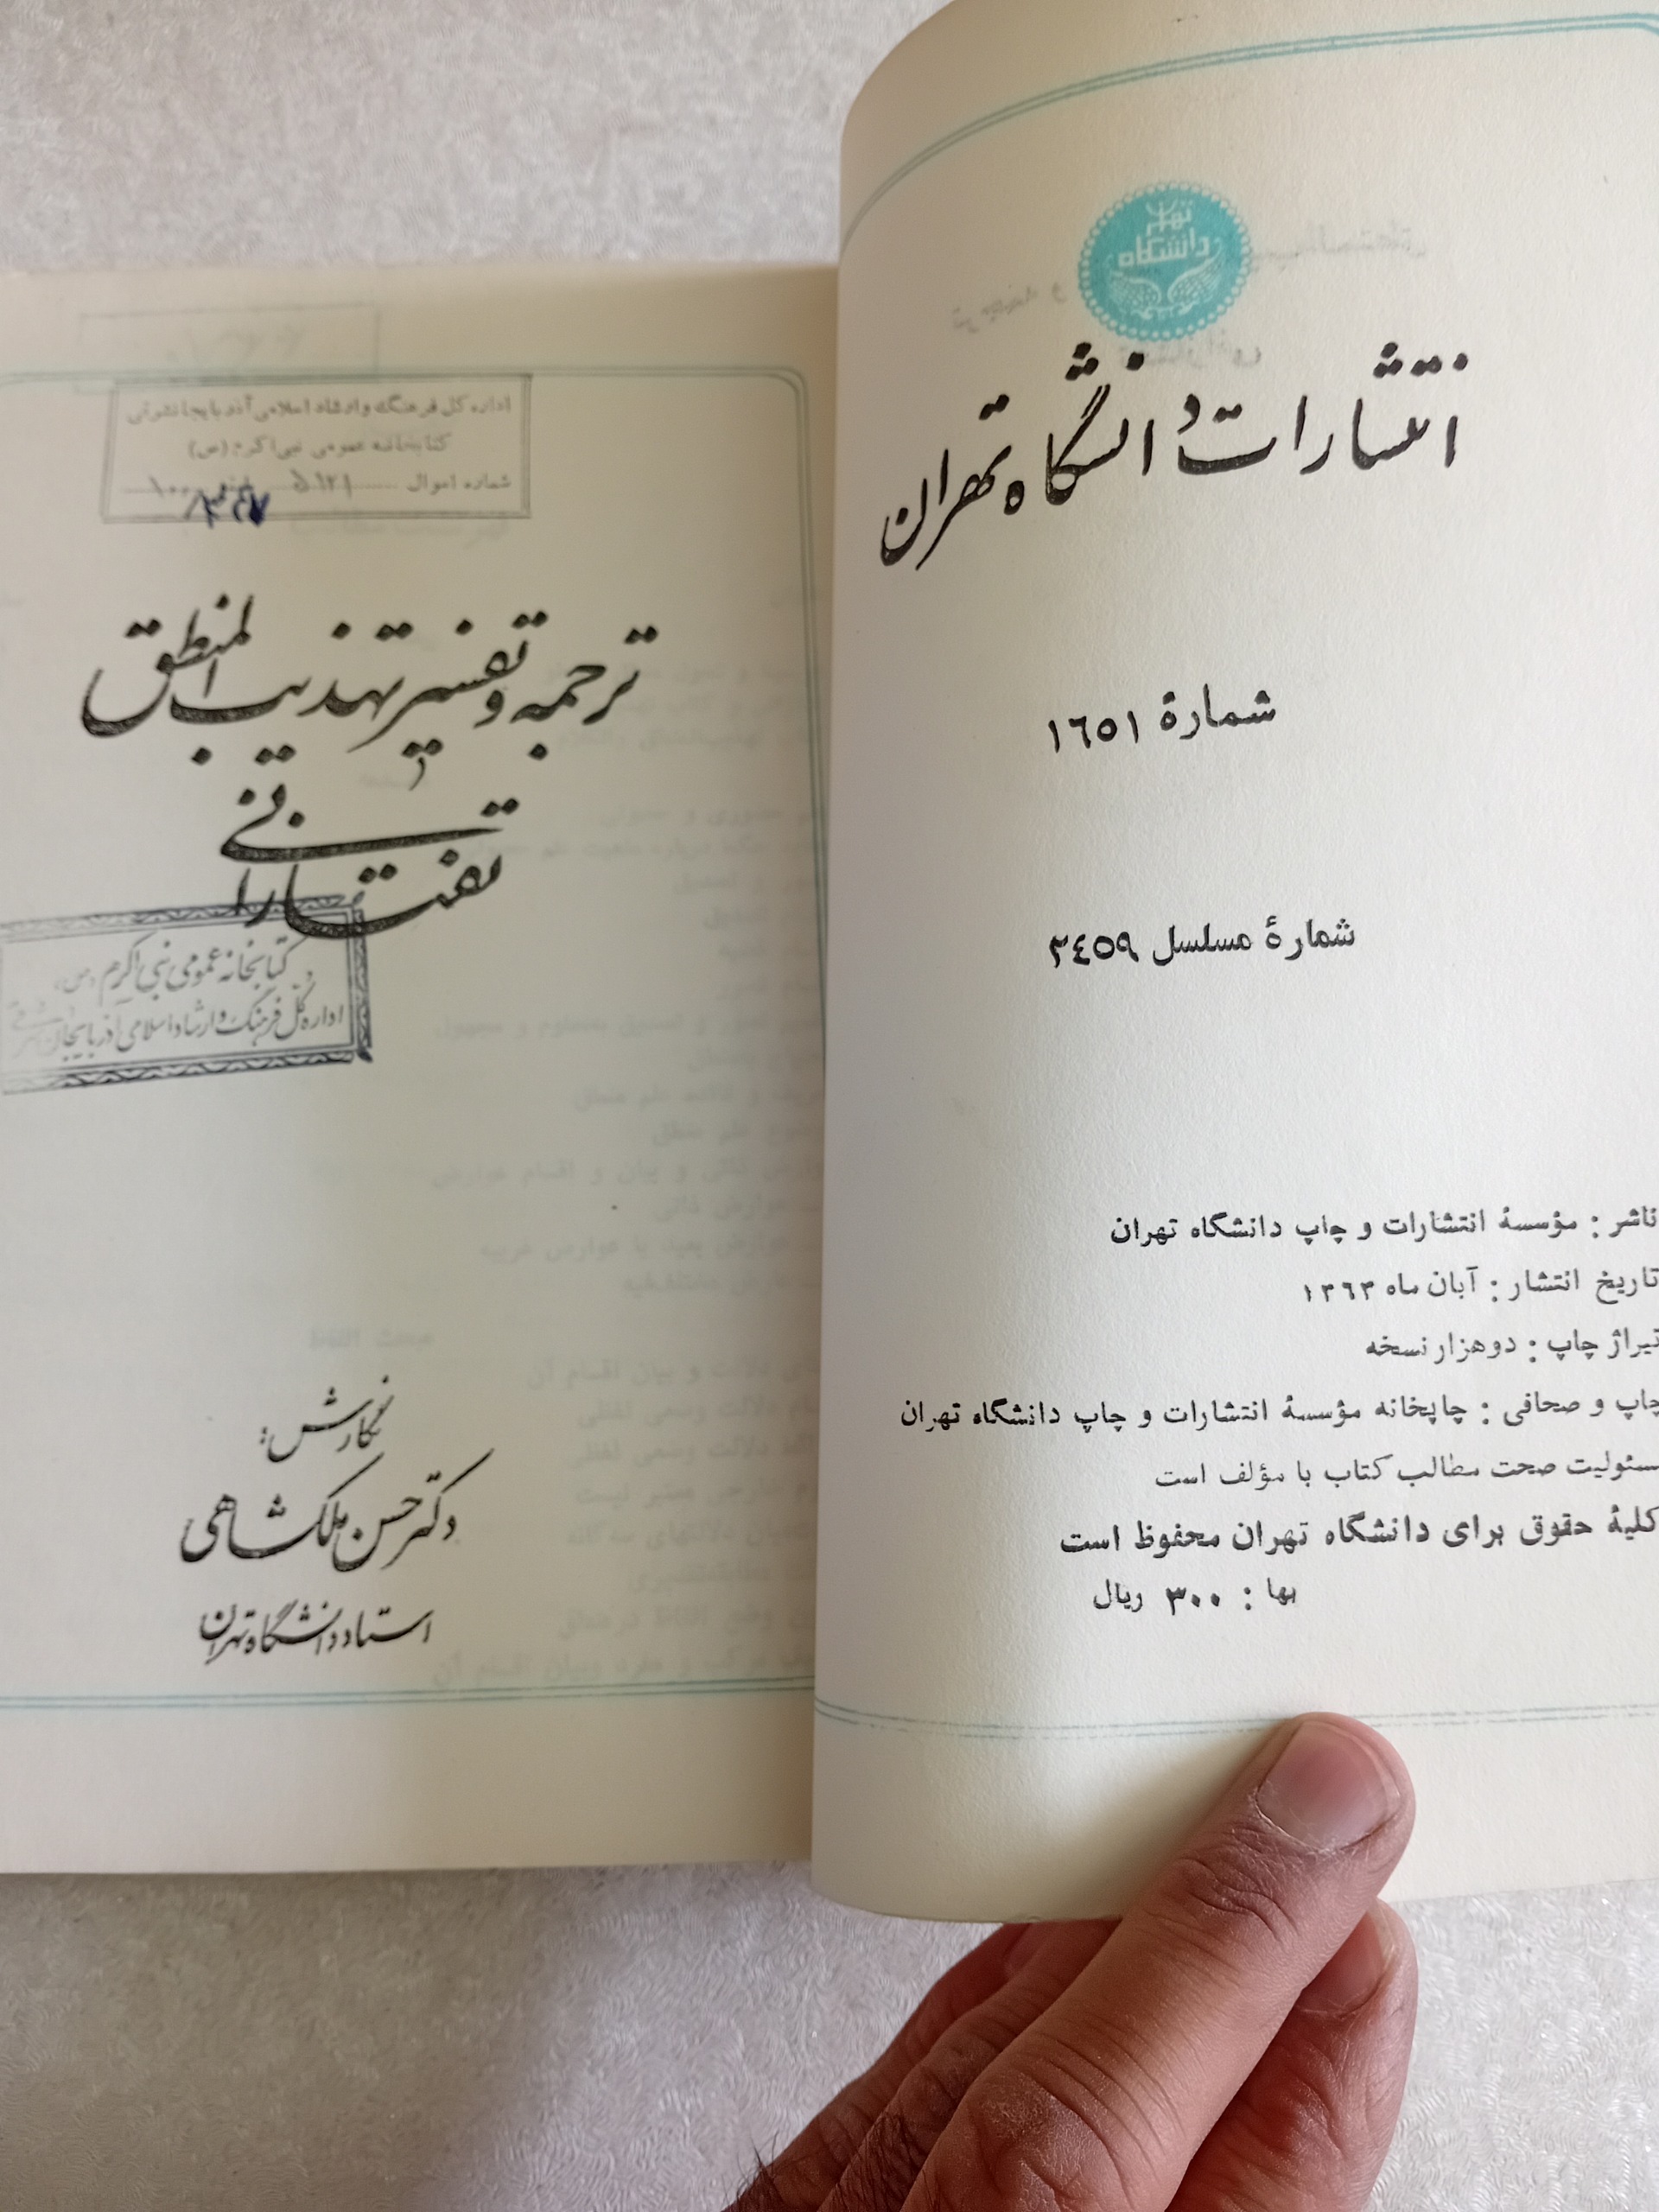 دانشگاه تهران
انتشارات دانشگاه تهران
شمارهٔ ١٦٥١
شمارهٔ مسلسل ٢٤٥٩
ناشر : مؤسسهٔ انتشارات و چاپ دانشگاه تهران
تاریخ انتشار : آبان ماه ١٣٦٣
تیراژ چاپ : دوهزار نسخه
چاپ و صحافی : چاپخانه مؤسسهٔ انتشارات و چاپ دانشگاه تهران
مسئولیت صحت مطالب کتاب با مؤلف است
کلیهٔ حقوق برای دانشگاه تهران محفوظ است
بها : ٣٠٠ ریال
اداره کل فرهنگ و ارشاد اسلامی آذربایجان شرقی
کتابخانه عمومی نبی اکرم (ص)
شماره اموال ۵۱۲۱
ترجمه و تفسیر تهذیب المنطق
تفتازانی
کتابخانه عمومی نبی اکرم (ص)
اداره کل فرهنگ و ارشاد اسلامی آذربایجان شرقی
نگارش :
دکتر حسن ملکشاهی
استاد دانشگاه تهران